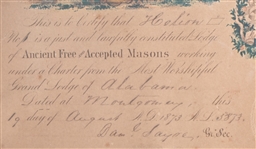 This is to Certify that Helion
is a just and lawfully constituted Lodge of
Ancient Free and Accepted Masons working
under a Charter from the Most Worshipful
Grand Lodge of Alabama.
Dated at Montgomery, this
19 day of August A.D. 1873. A.L. 5873.
Dan Sayre, G. Sec.